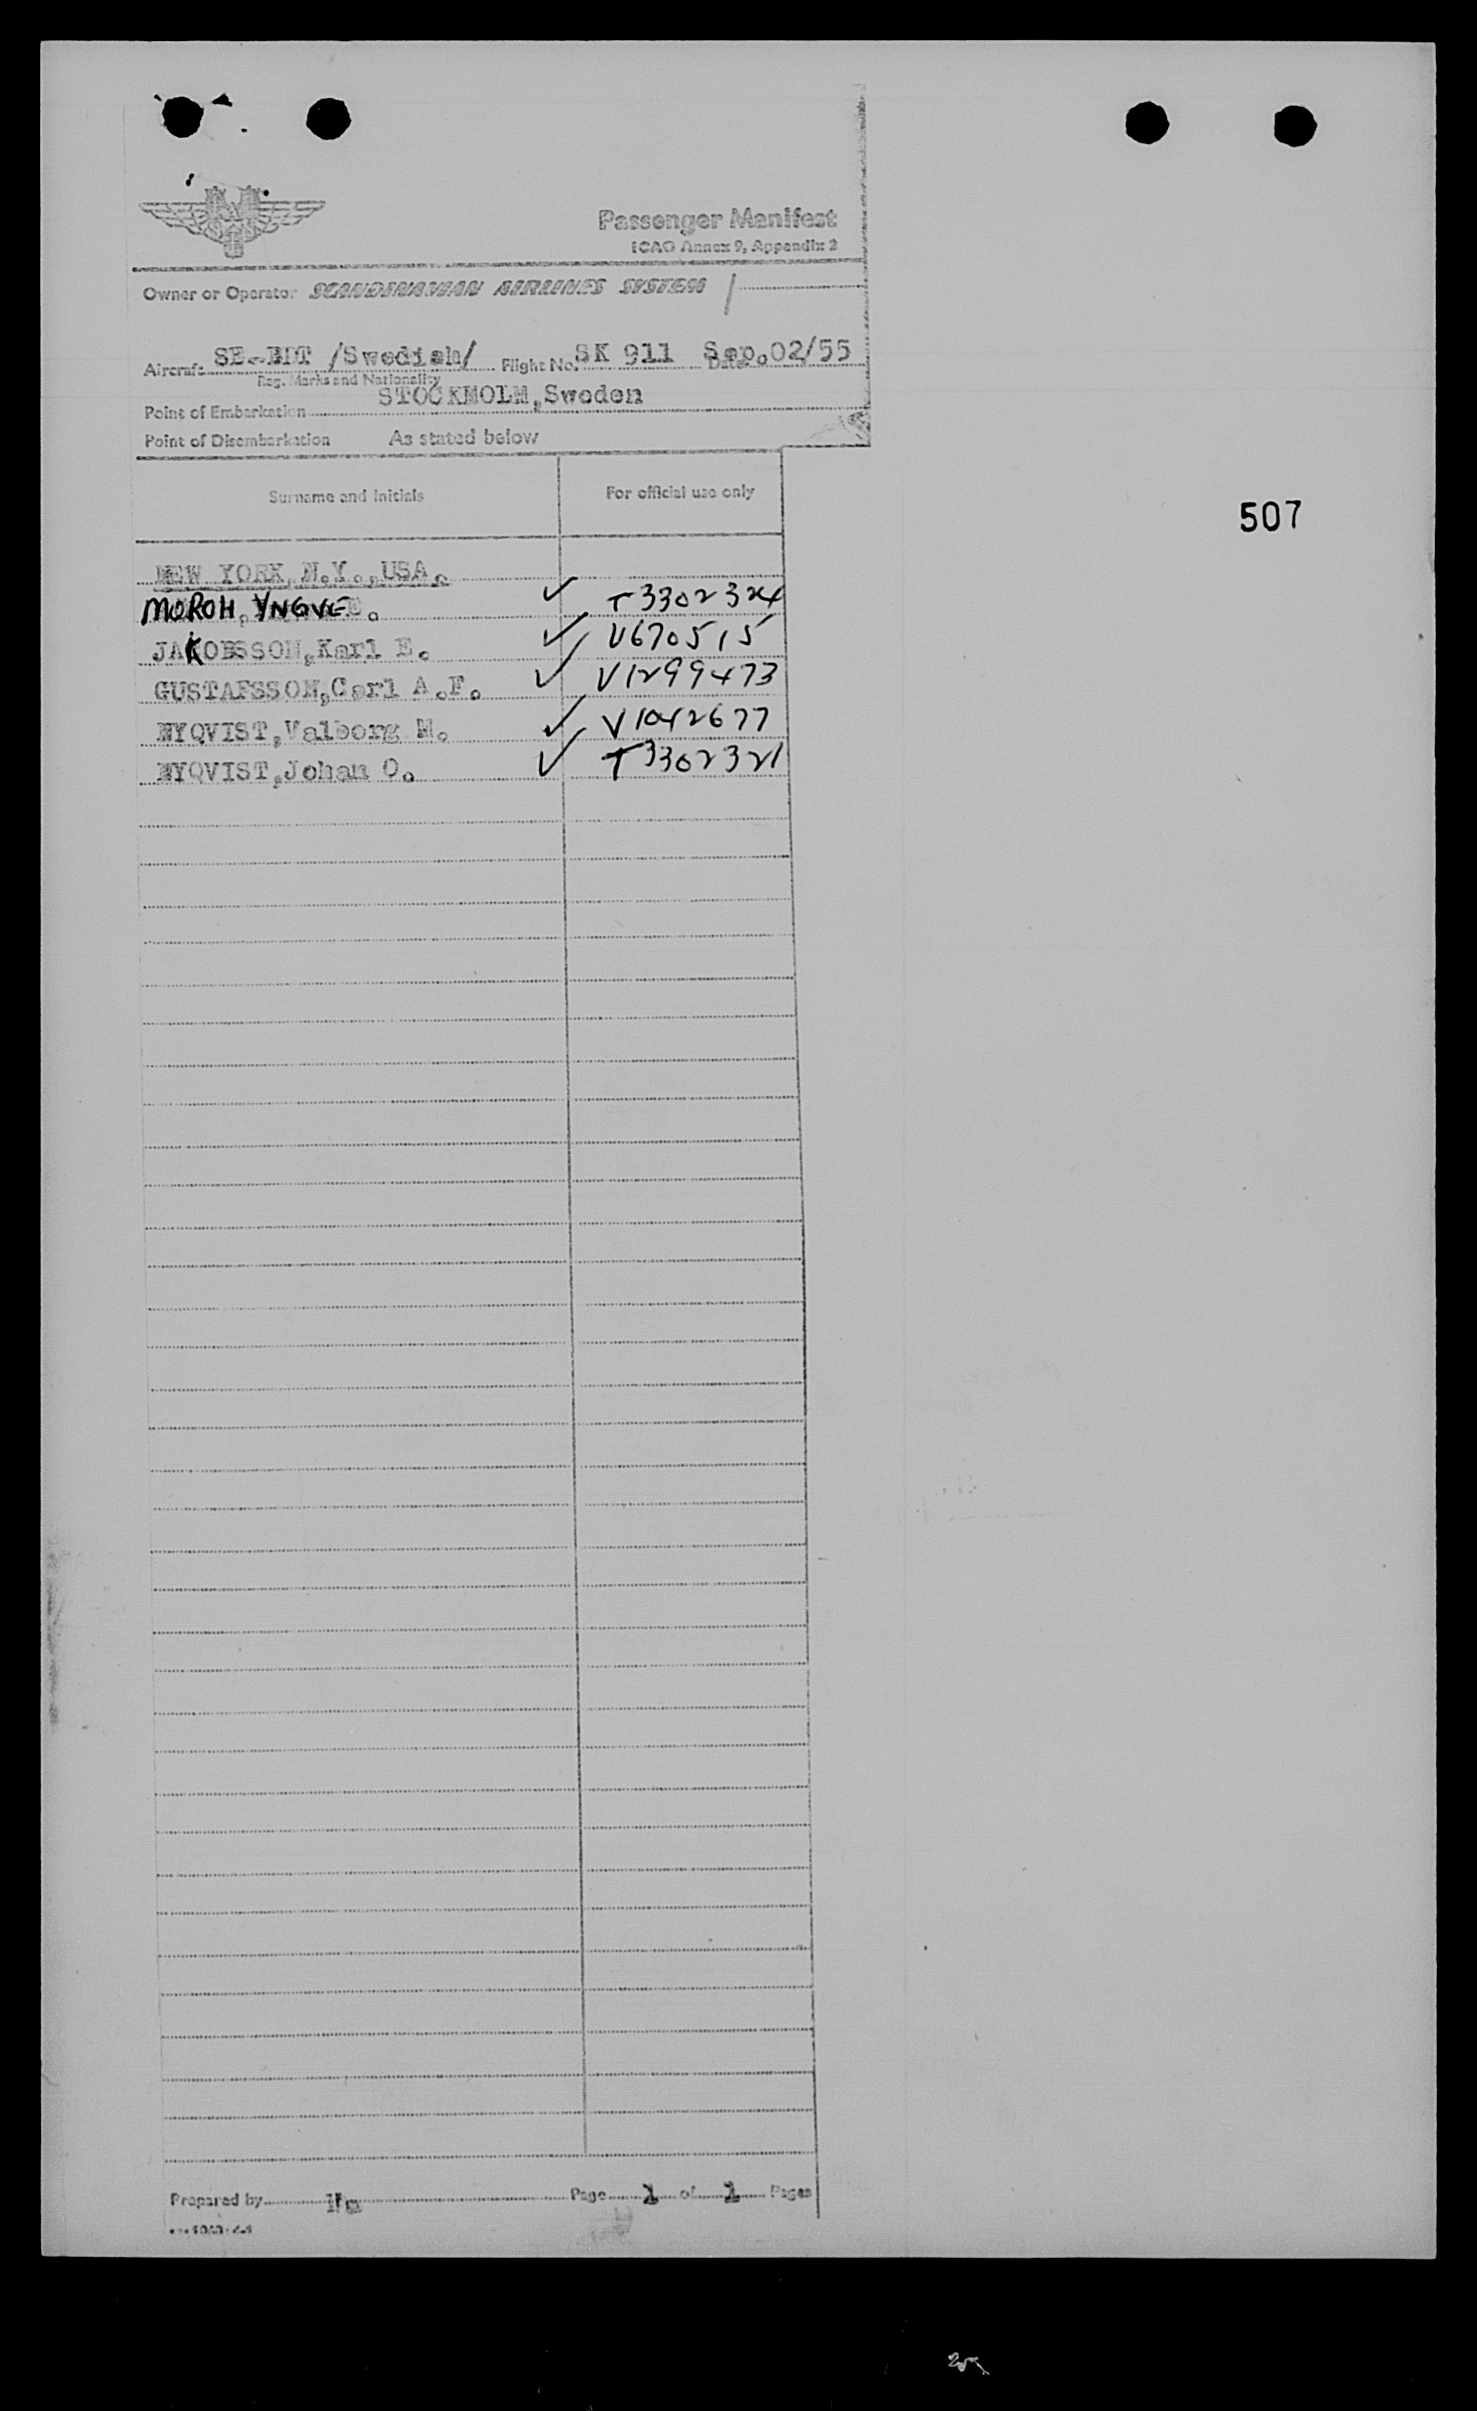 Passenger Manifest
ICAO Annex 9, Appendix 2
Owner or Operator SCANDINAVIAN AIRLINES SYSTEM
Aircraft SE-BDT /Swedish/ Flight No. SK 911 Date Sep.02/55
Reg. Marks and Nationality
Point of Embarkation STOCKHOLM,Sweden
Point of Disembarkation As stated below
Surname and Initials For official use only
507
NEW YORK,N.Y.,USA.
MOROH, YNGVE E. ✓ T3302324
JAKOBSSON,Karl E. ✓ V670515
GUSTAFSSON,Carl A.F. ✓ V1299473
NYQVIST,Valborg M. ✓ V1042677
NYQVIST,Johan O. ✓ T3302321
Prepared by Page 1 of 1 Pages